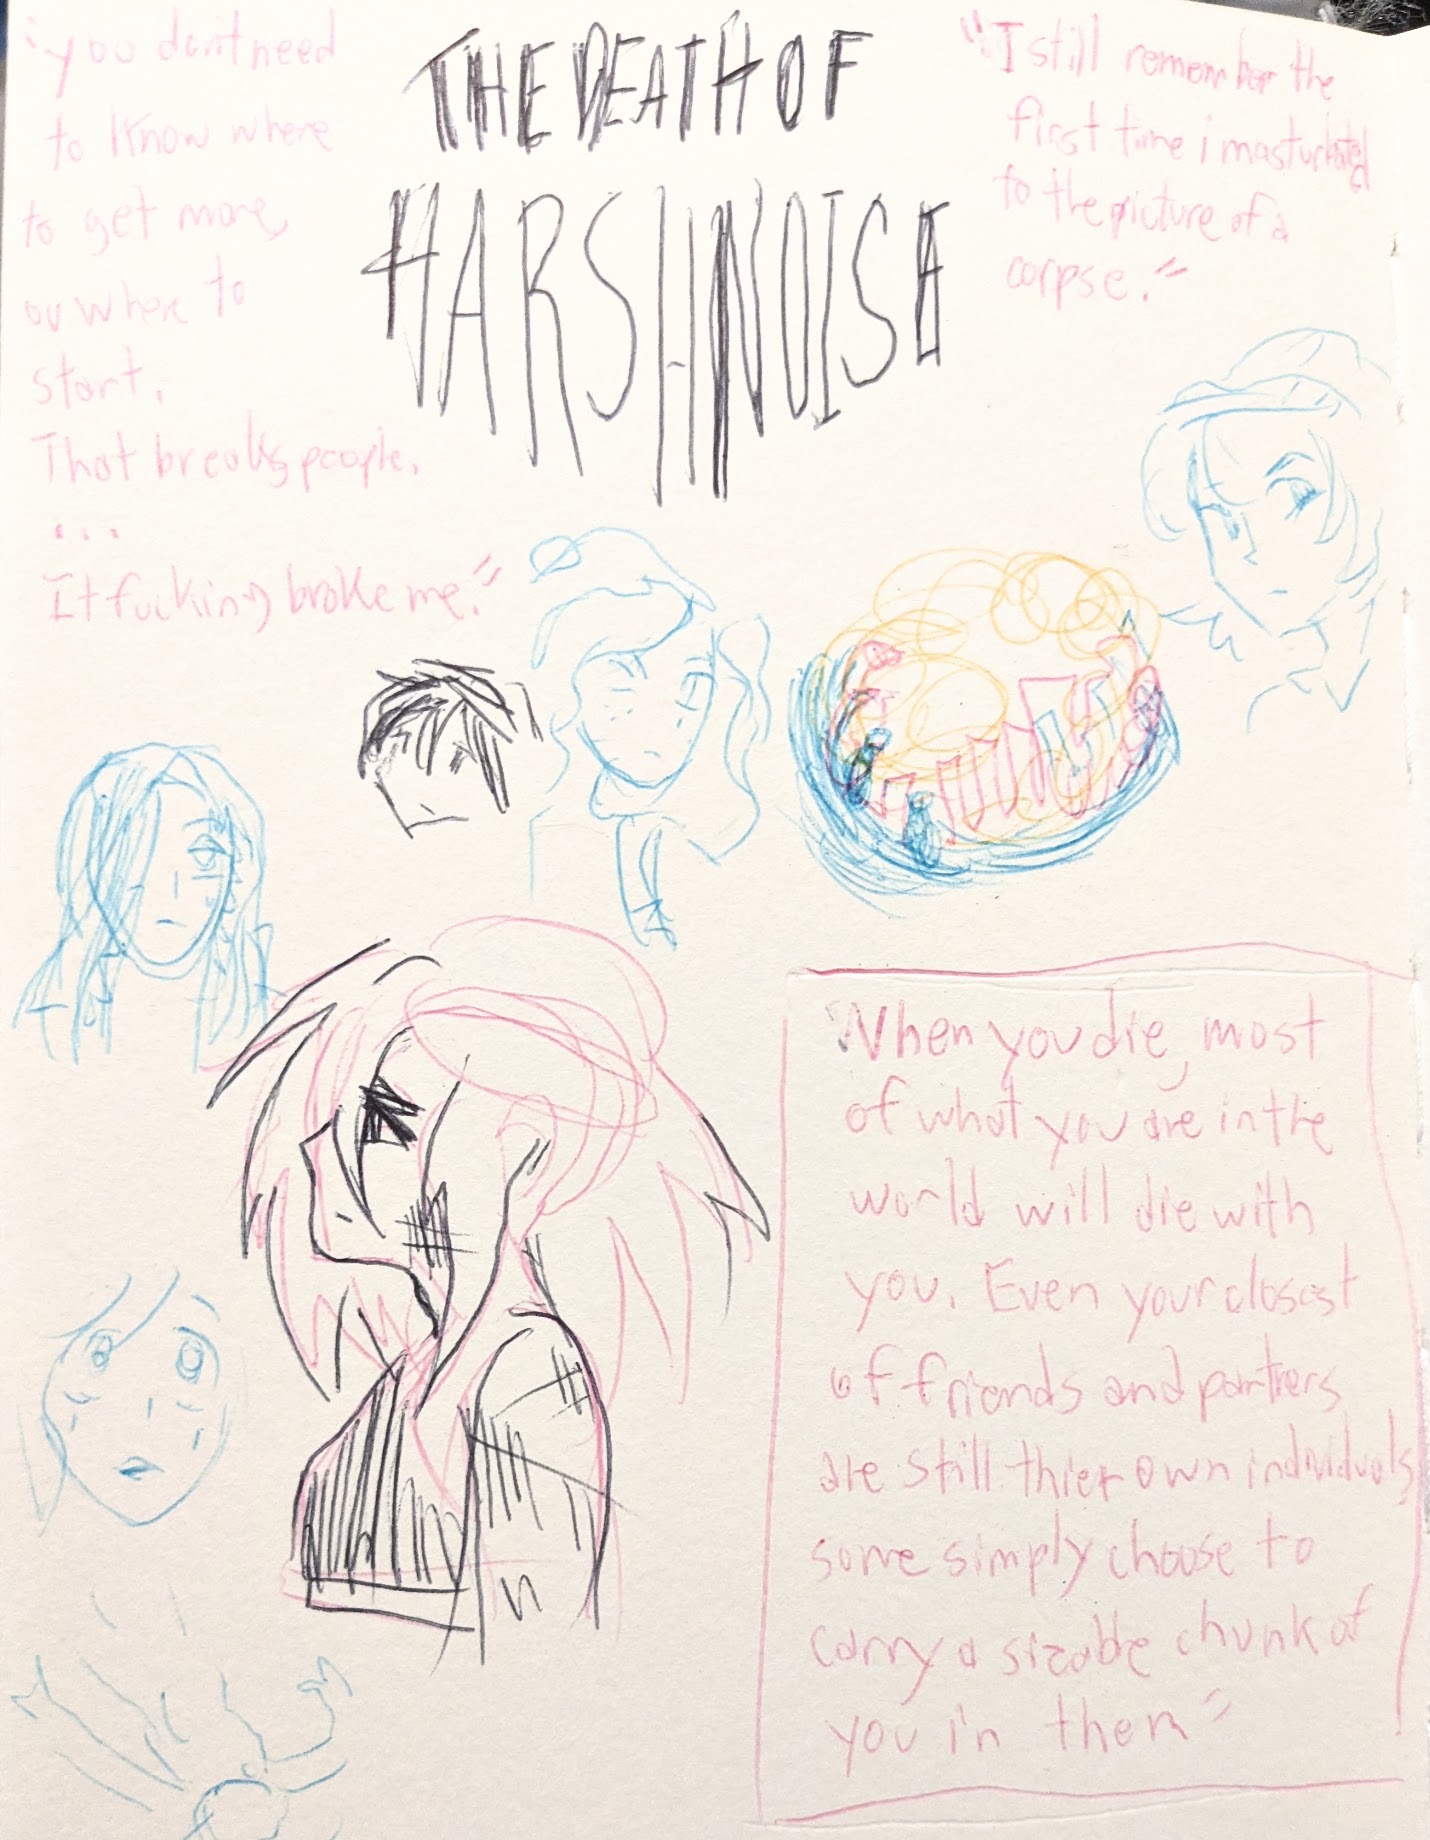 THE DEATH OF
HARSHNOISE
"you don't need
to know where
to get more,
or where to
start.
That breaks people.
...
It fucking broke me."
"I still remember the
first time i masturbated
to the picture of a
corpse."
"When you die, most
of what you are in the
world will die with
you. Even your closest
of friends and partners
are still thier own individuals
some simply choose to
carry a sizable chunk of
you in them"